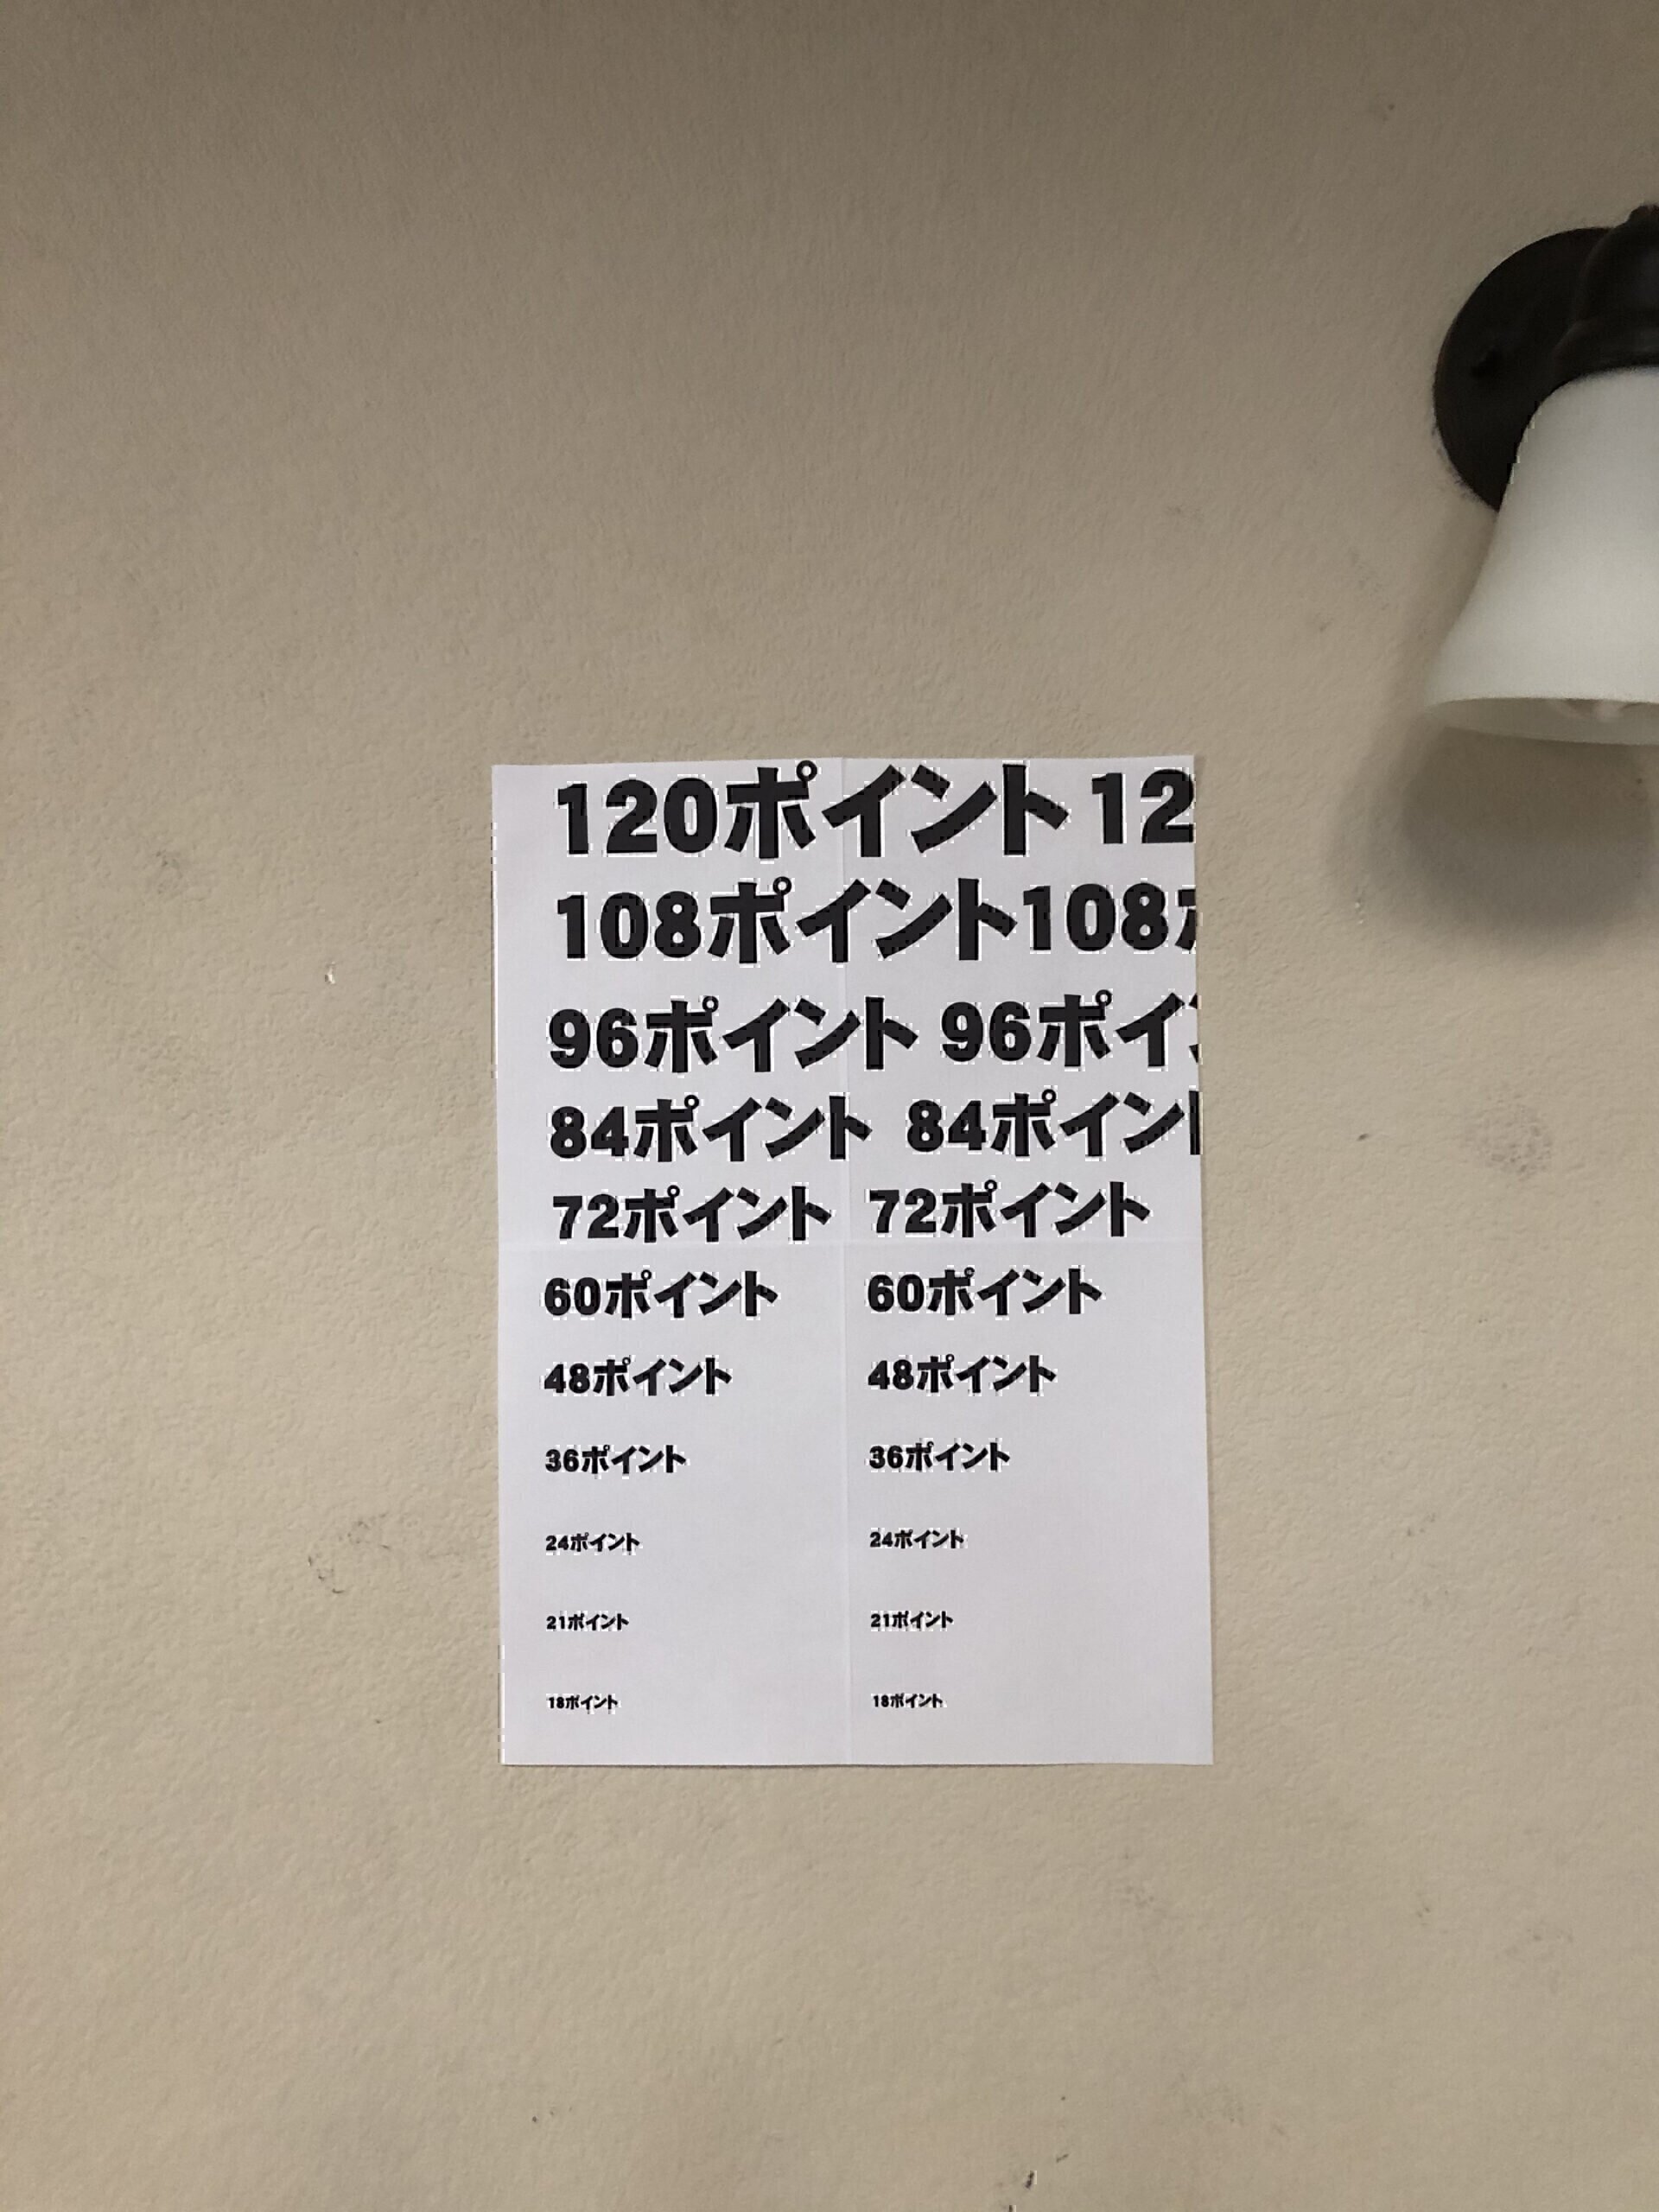 120ポイント 12
108ポイント108
96ポイント 96ポイ
84ポイント 84ポイン
72ポイント 72ポイント
60ポイント 60ポイント
48ポイント 48ポイント
36ポイント 36ポイント
24ポイント 24ポイント
21ポイント 21ポイント
18ポイント 18ポイント